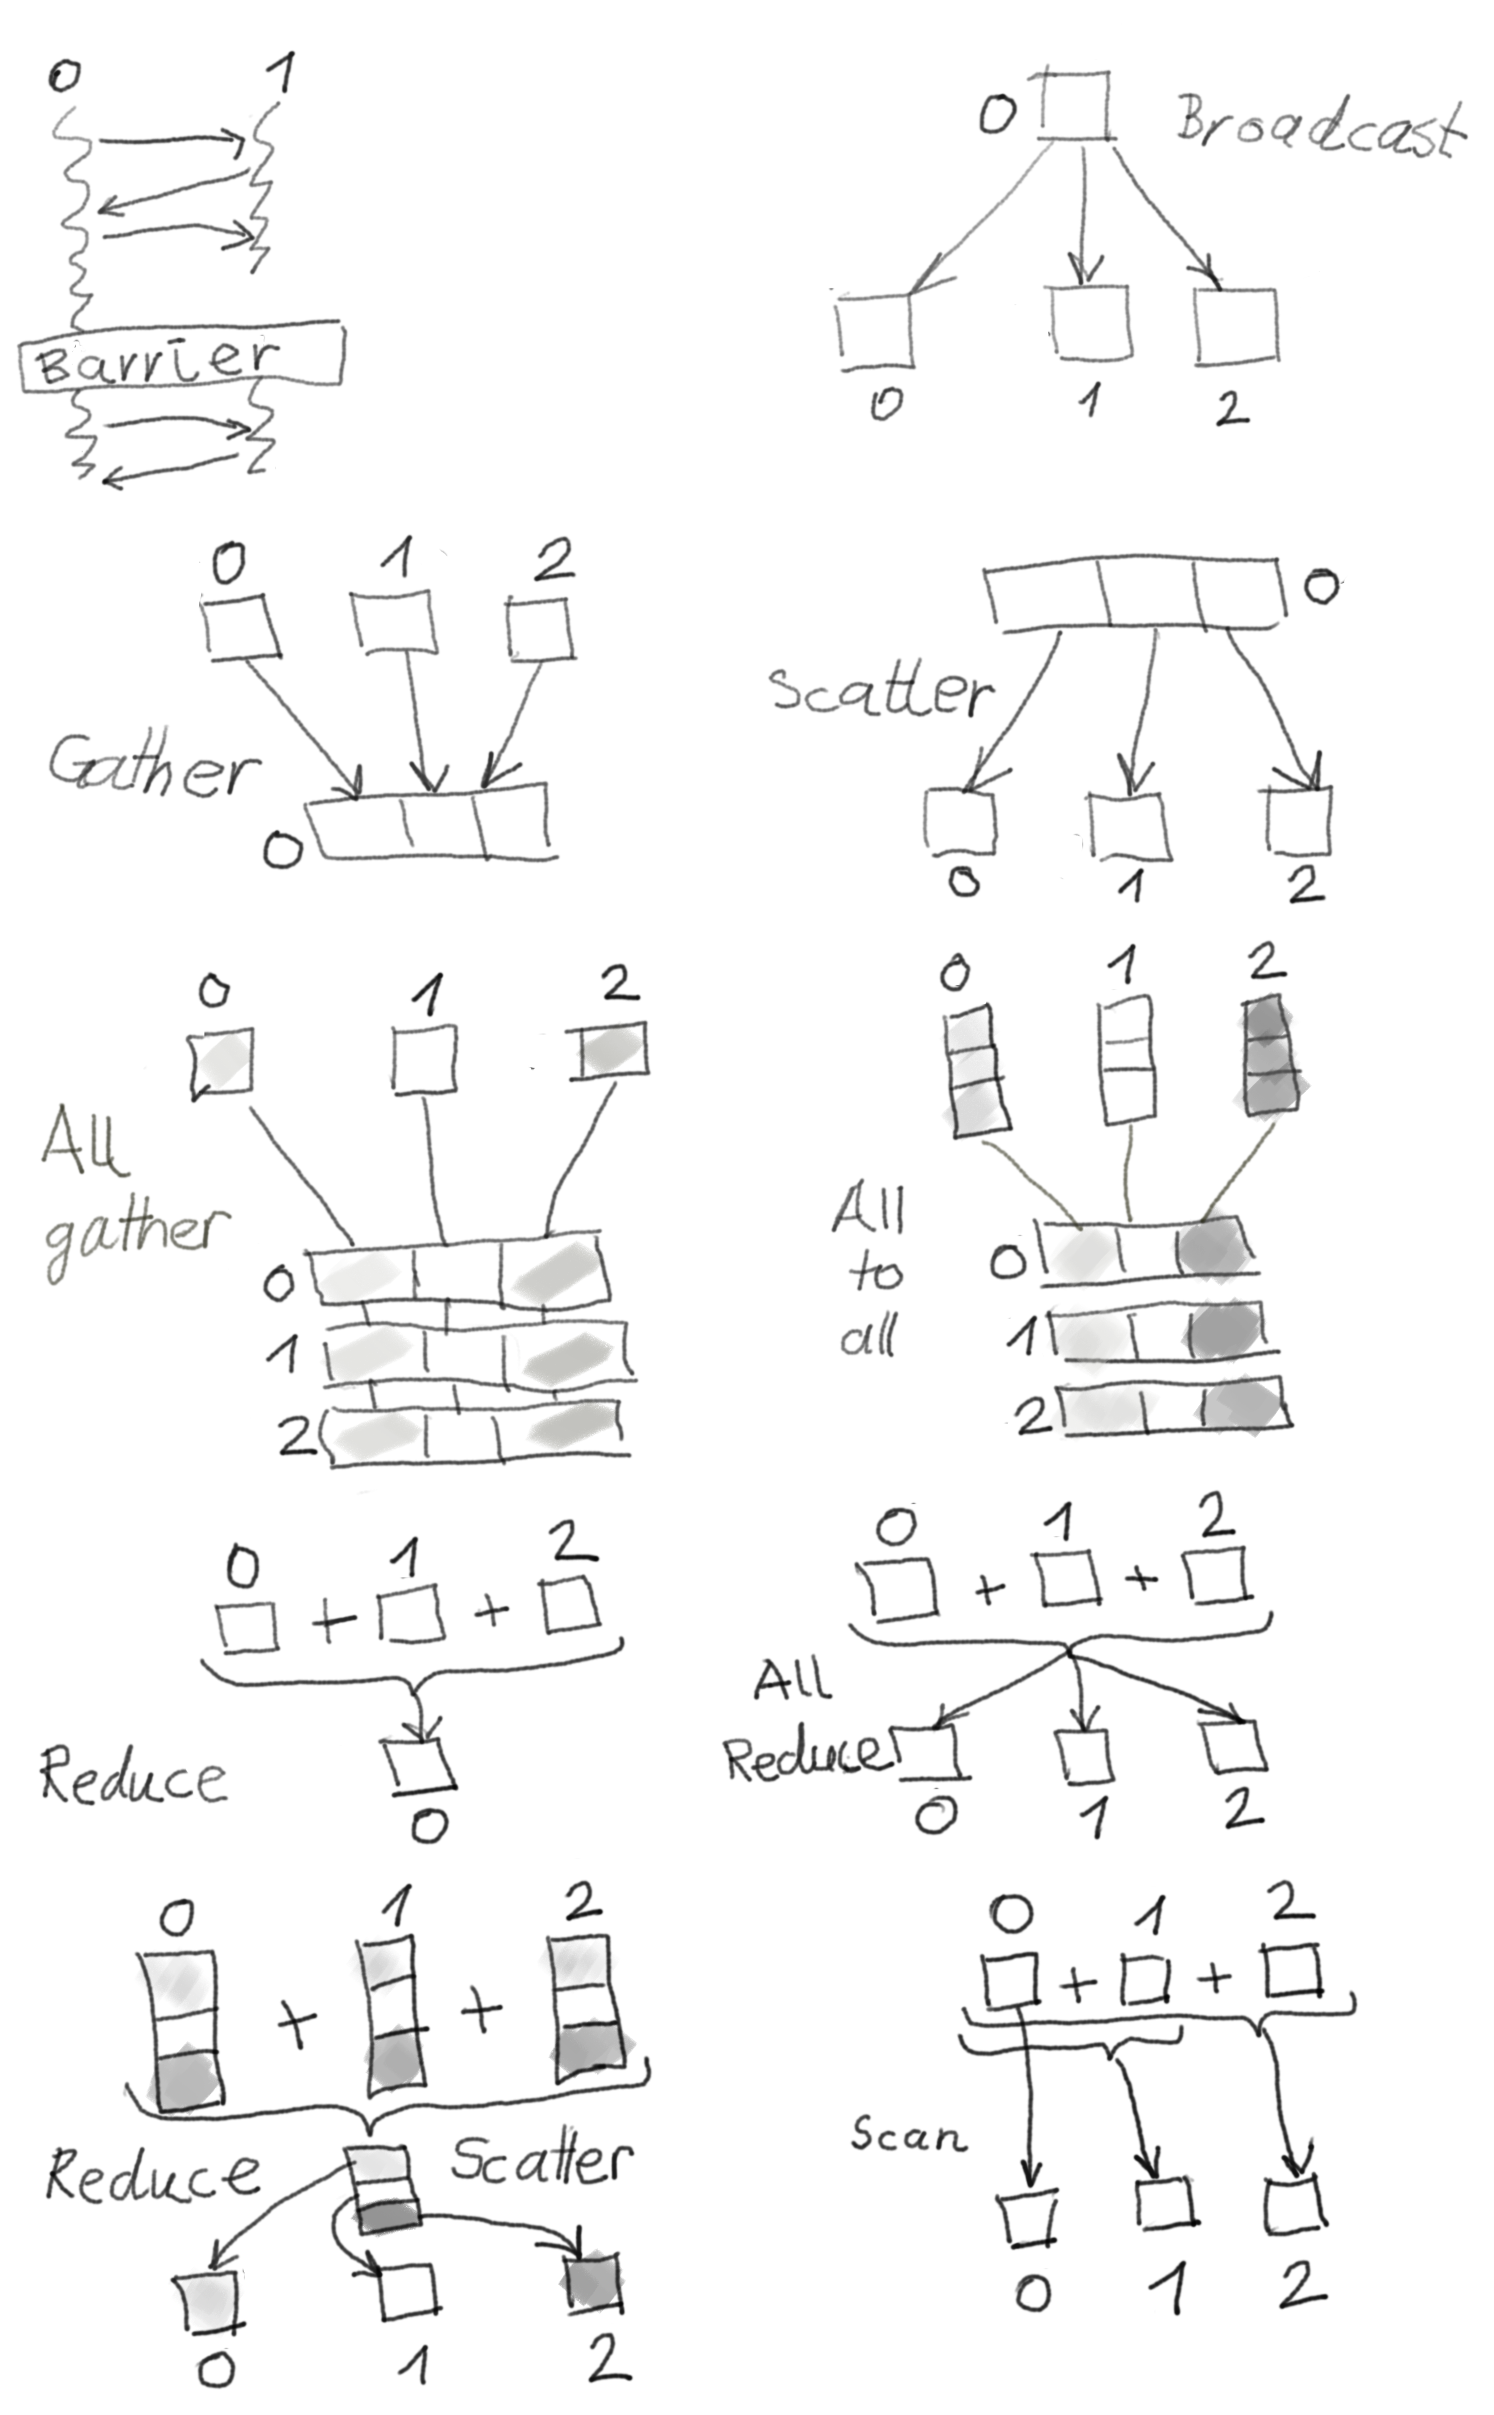 0 1
Barrier
0 Broadcast
0 1 2
0 1 2
Gather
0
0
Scatter
0 1 2
0 1 2
All
gather
0
1
2
0 1 2
All
to
all
0
1
2
0 + 1 + 2
Reduce
0
0 + 1 + 2
All
Reduce
0 1 2
0 + 1 + 2
Reduce Scatter
0 1 2
0 + 1 + 2
Scan
0 1 2